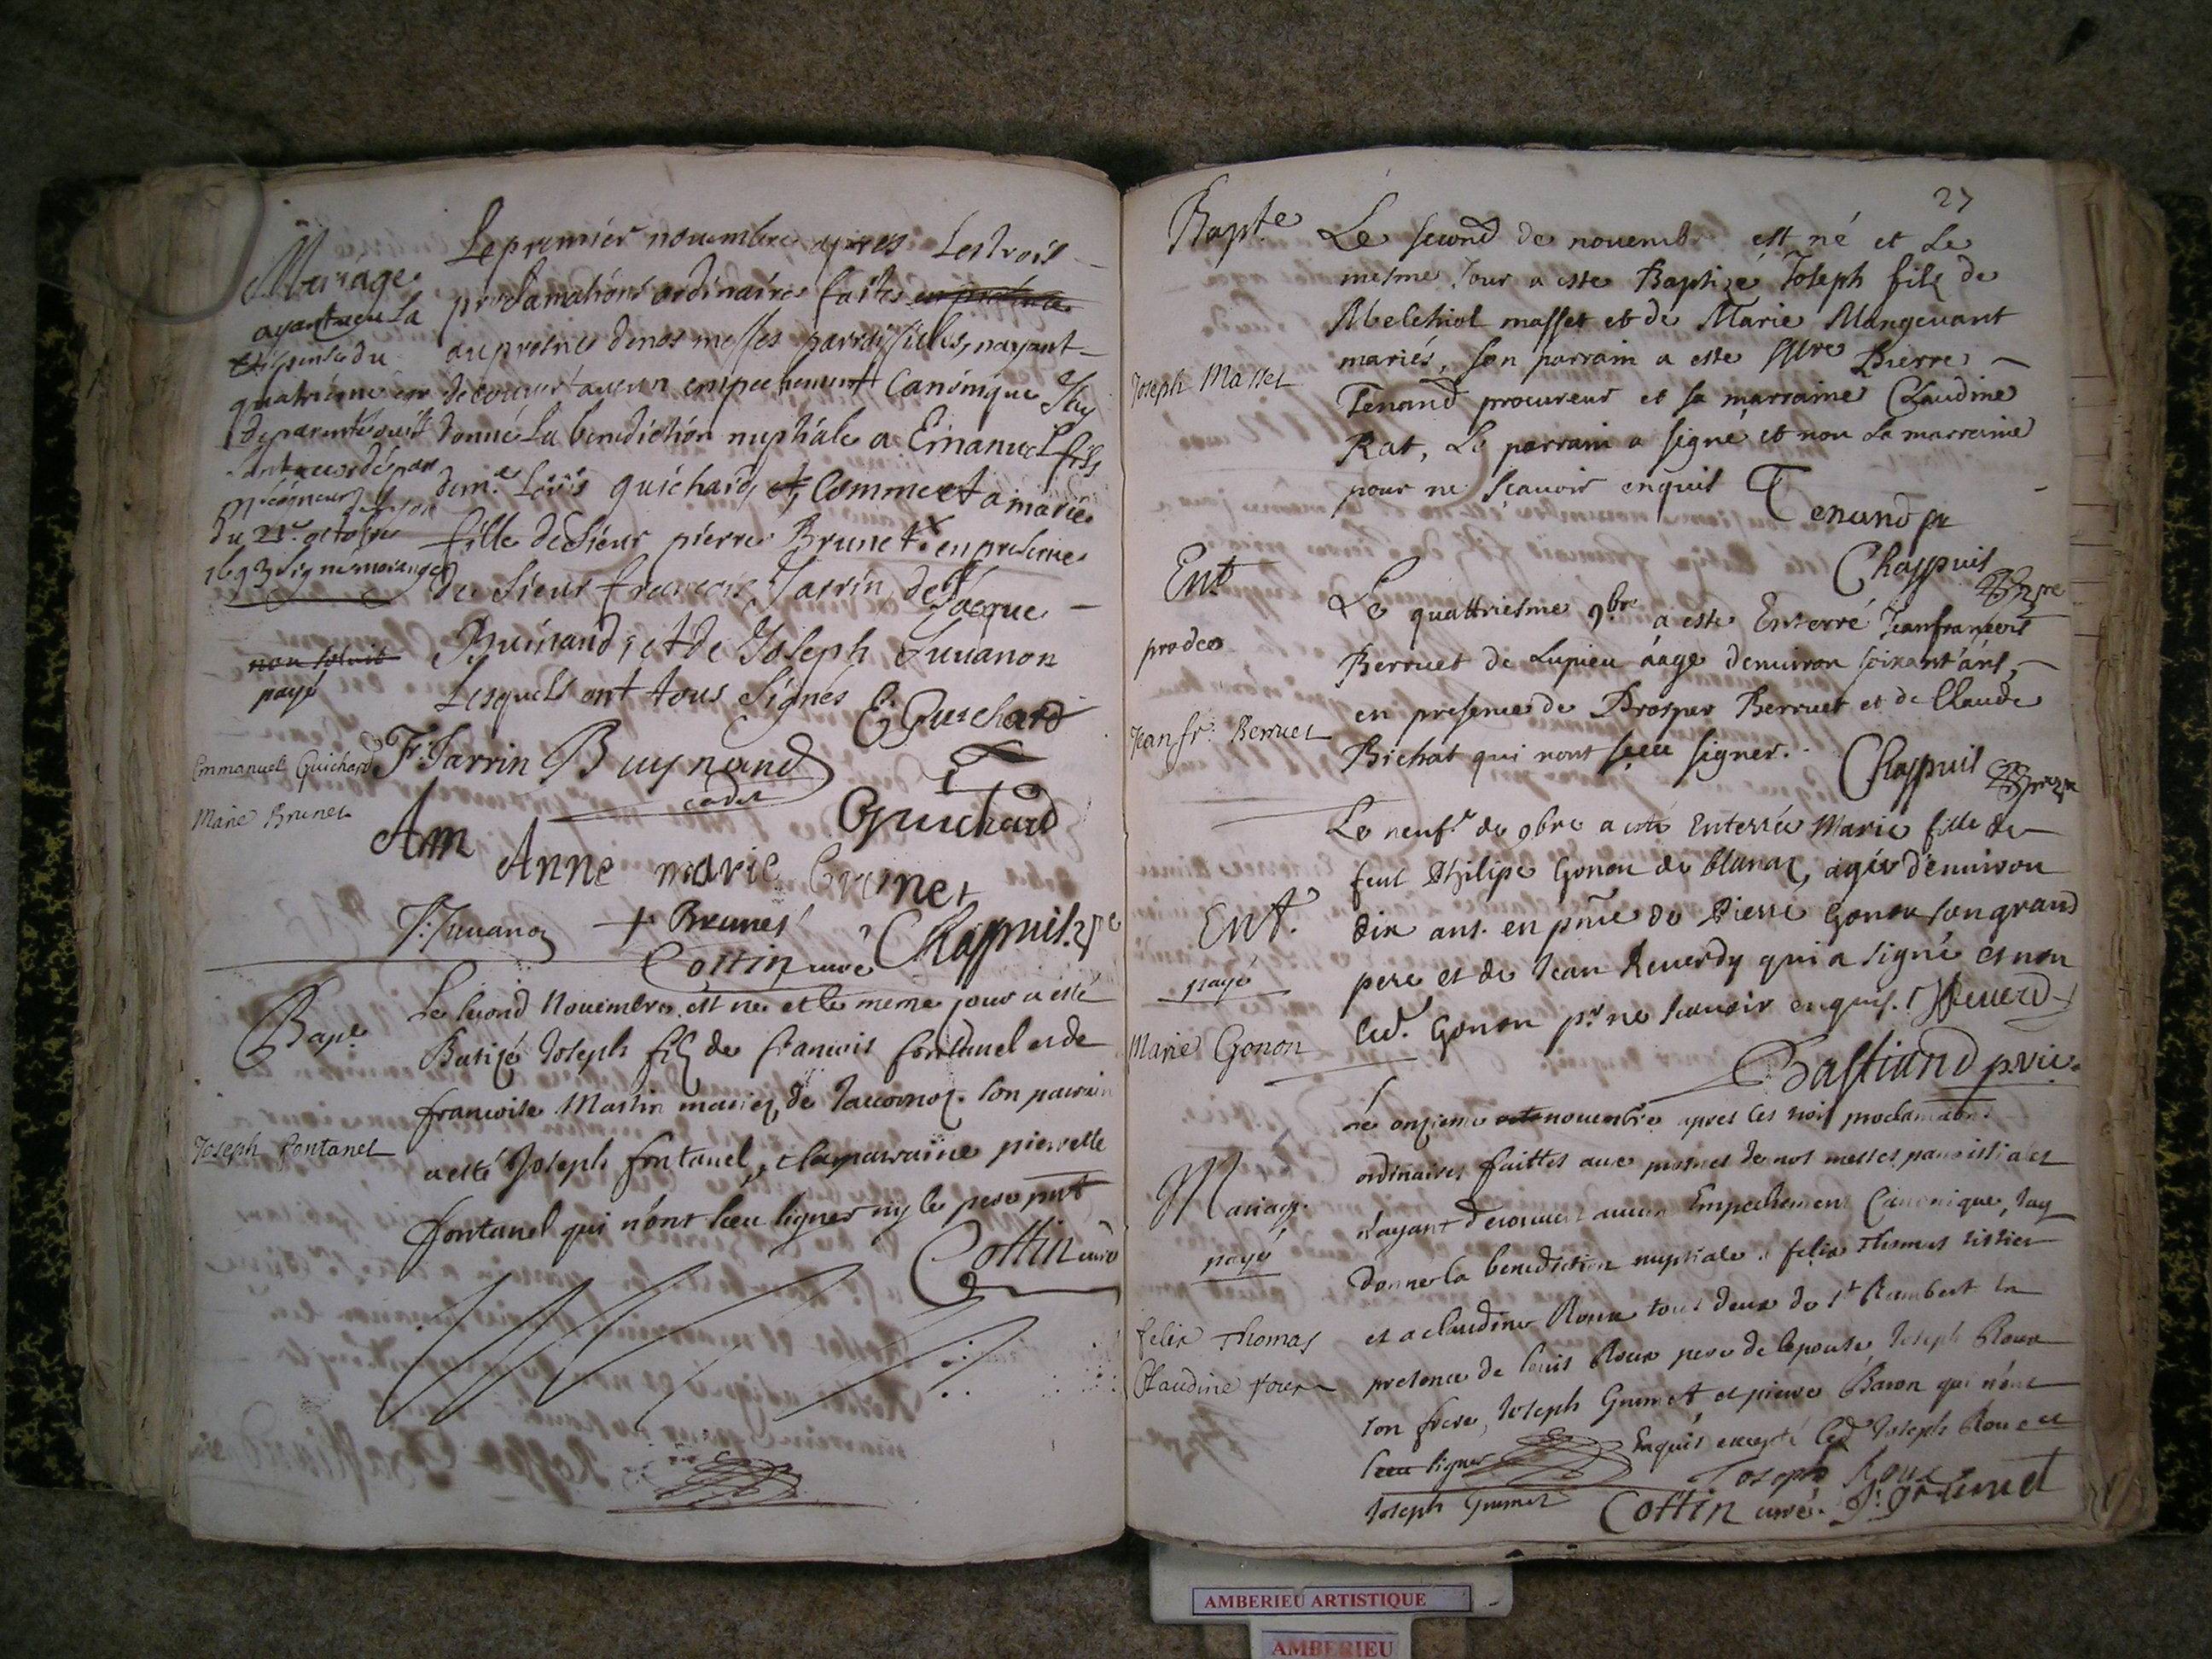 Mariage
ayant veu la
dispense du
quatrieme
de parenté
accordé par
du 21e octobre
1693 signé morange
non solvit
payé
Emmanuel Guichard
Marie Brunet
Le premier novembre apres les trois
proclamations ordinaires faites en presence
au prosne de nos messes parroissiales, nayant
decouvert aucun empechement Canonique J'ay
donné la benediction nuptiale a Emanuel fils
de me. Loüis guichard, et Comme et a marie
fille de sieur pierre Brunet en presence
de sieur françois Jarrin, de Jacque
Buinand, et de Joseph Juvanon
Lesquels ont tous signés E Guichard
F. Jarrin Buynand
cadet
Guichard
Am
Anne marie brunet
J. Juvanon + Brunet
Cottin curé Chappuis
Bape.
Joseph Fontanel
Le second Novembre est né et le meme jour a esté
Batizé Joseph fils de francois fontanel et de
francoise Martin mariez, de Son parrain
a esté Joseph fontanel, et la marraine pierrette
fontanel qui n'ont sceu signer ny le pere pnt
Cottin curé
27
Bapte
Joseph Masset
Le second de novembre est né et le
mesme Jour a este Baptizé Joseph fils de
Melchiol masset et de Marie Mangevant
mariés, son parrain a este Pierre
Tenand procureur et sa marraine Claudine
Rat, Le parrain a signé et non la marraine
pour ne scavoir enquis Tenand pr
Chappuis
Ent
pro deo
Jean fr. Berruet
Le quattriesme 9bre a este Enterré Jeanfrançois
Berruet de Lupieu âagé d'environ soixant'ans,
en presence de Prosper Berruet et de Claude
Bichat qui n'ont sçeu signer. Chappuis
Ent.
payé
Marie Gonon
Le neufe de 9bre a esté Enterrée Marie fille de
feut Philipe Gonon de blanaz, agée d'environ
dix ans. en pnce de Pierre Gonon son grand
pere et de Jean Reverdy qui a signé et non
led. Gonon pr ne scavoir enquis. J Reverdy
Bastiand
Mariage
payé
felix Thomas
Claudine Roux
Le onzieme novembre apres les trois proclamations
ordinaires faittes aux prosnes de nos messes parroissiales
n'ayant decouvert aucun Empechement Canonique, Jay
donner la benediction nuptiale a felix Thomas tissier
et a claudine Roux tous deux de St Rambert En
presence de louis Roux pere de lepouse Joseph Roux
son frere, Joseph Grumet et pierre Baron qui n'ont
sceu signer Enquis excepté led Joseph Roux et
Joseph Grumet Joseph Roux
Cottin curé. J. Grumet
AMBERIEU ARTISTIQUE
AMBERIEU